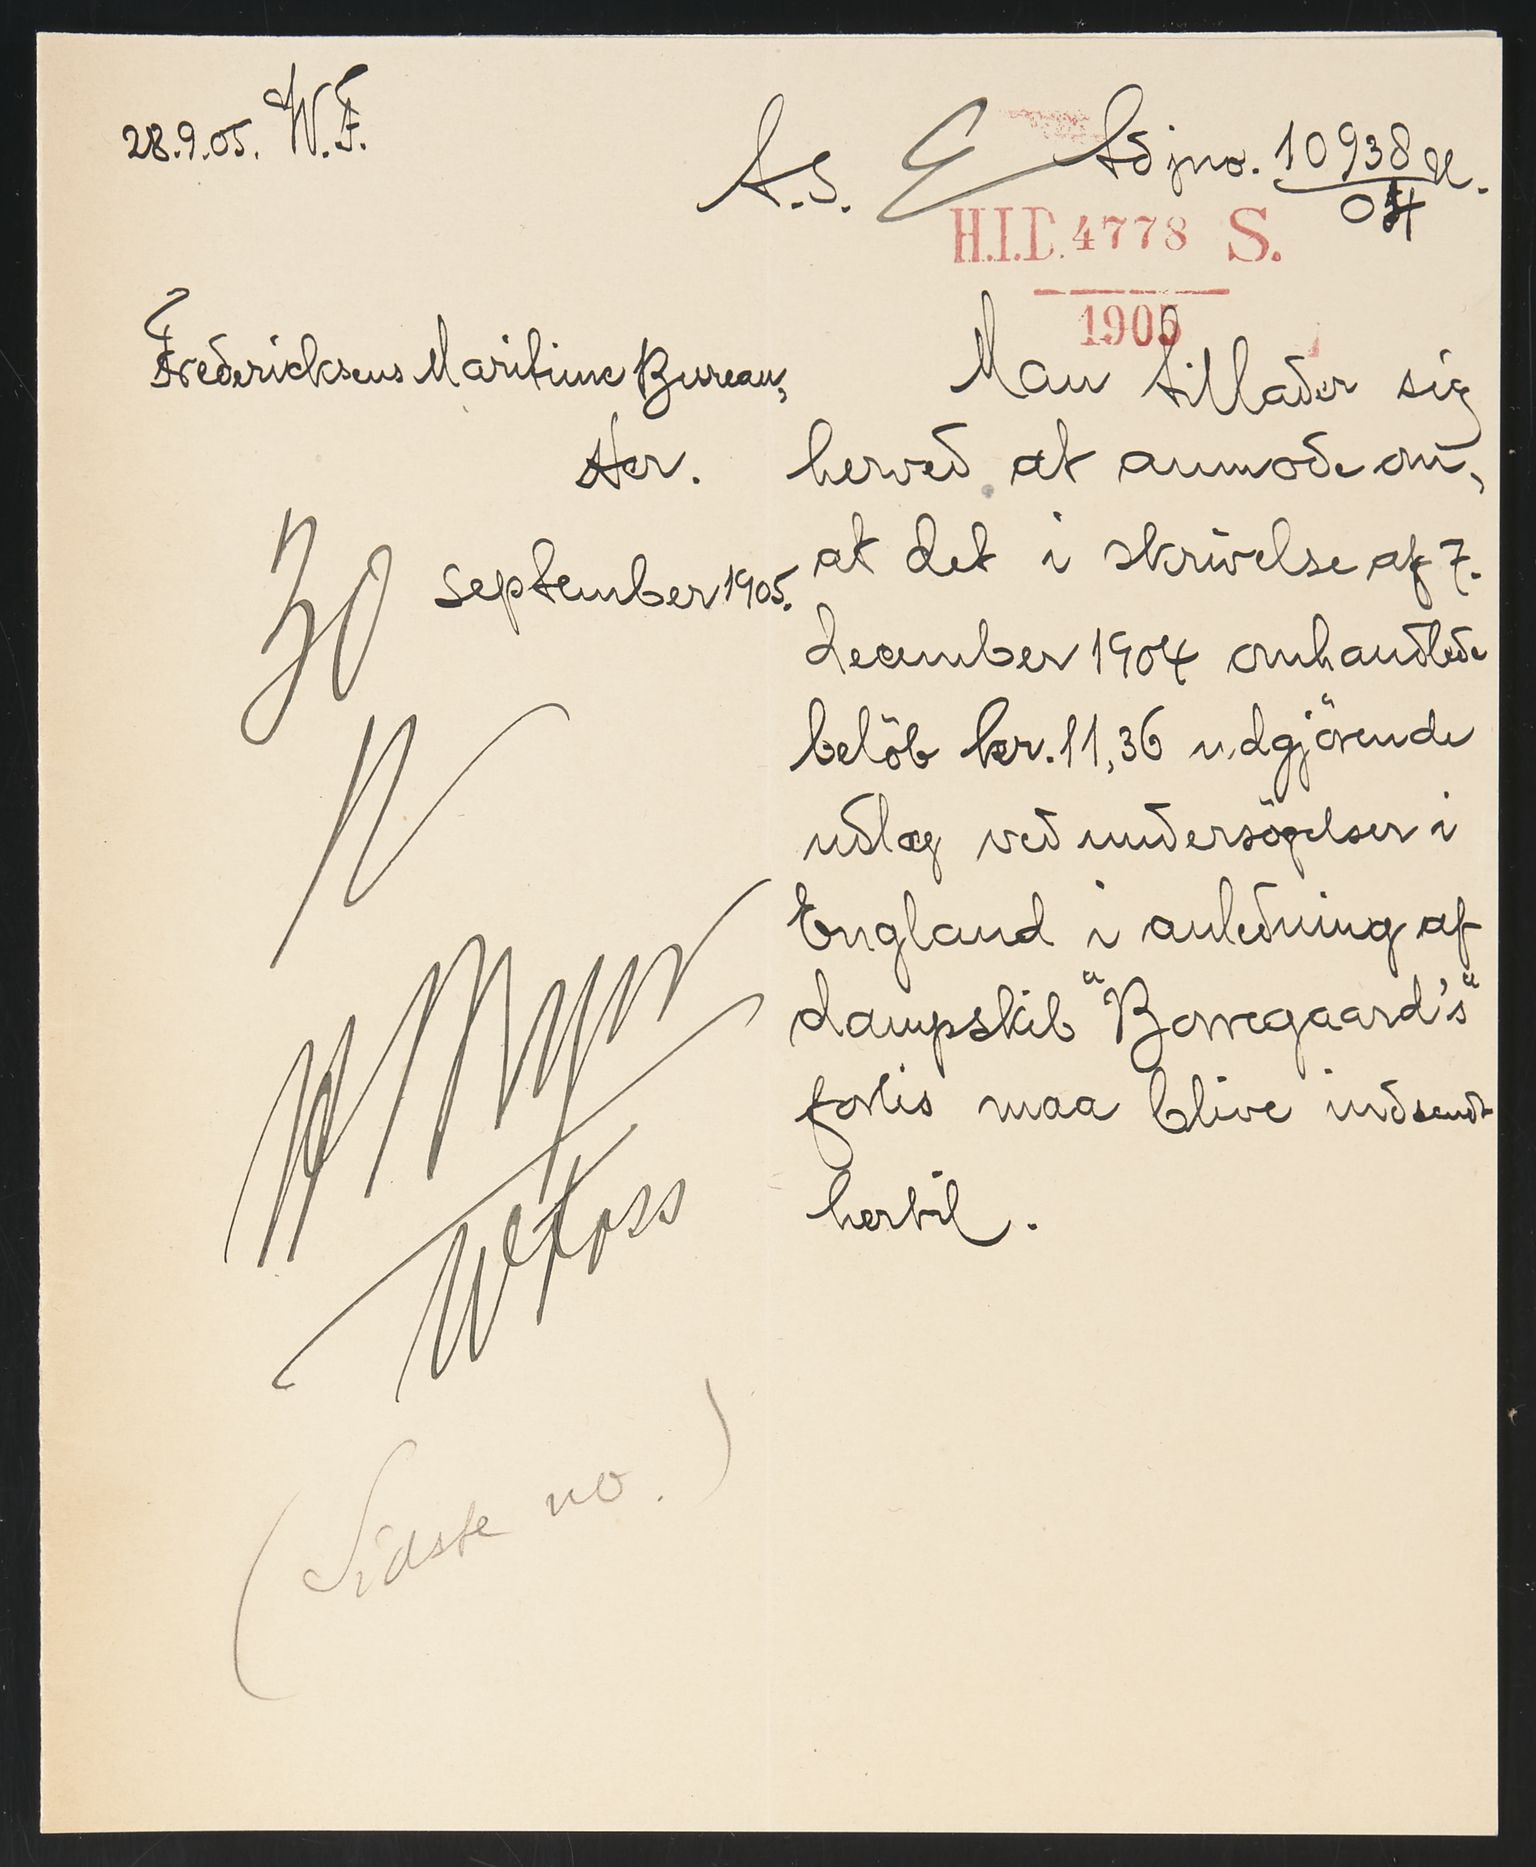 28.9.05. W.F.
A.S.
Ad jno. 10938 H.
04
H.I.D. 4778 S.
1905
Fredericksens Maritime Bureau,
Her.
30 september 1905.
Man tillader sig
herved at anmode om,
at det i skrivelse af 7.
december 1904 omhandlede
belöb kr. 11,36 udgjörende
udlæg ved undersögelser i
England i anledning af
dampskib "Borregaard's"
forlis maa blive indsendt
hertil.
(Sidste no.)